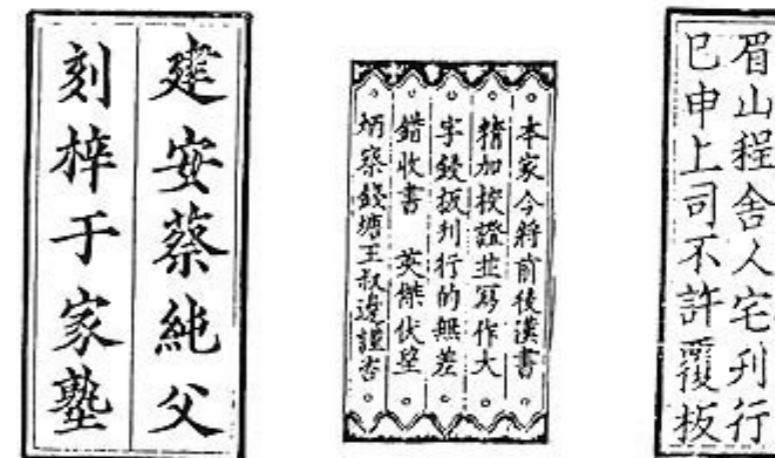 建安蔡純父
刻梓于家塾
本家今將前後漢書
精加校證並寫作大
字鋟板刋行的無差
錯收書 英傑伏望
炳察錢塘王叔邊謹咨
眉山程舍人宅刋行
巳申上司不許覆板